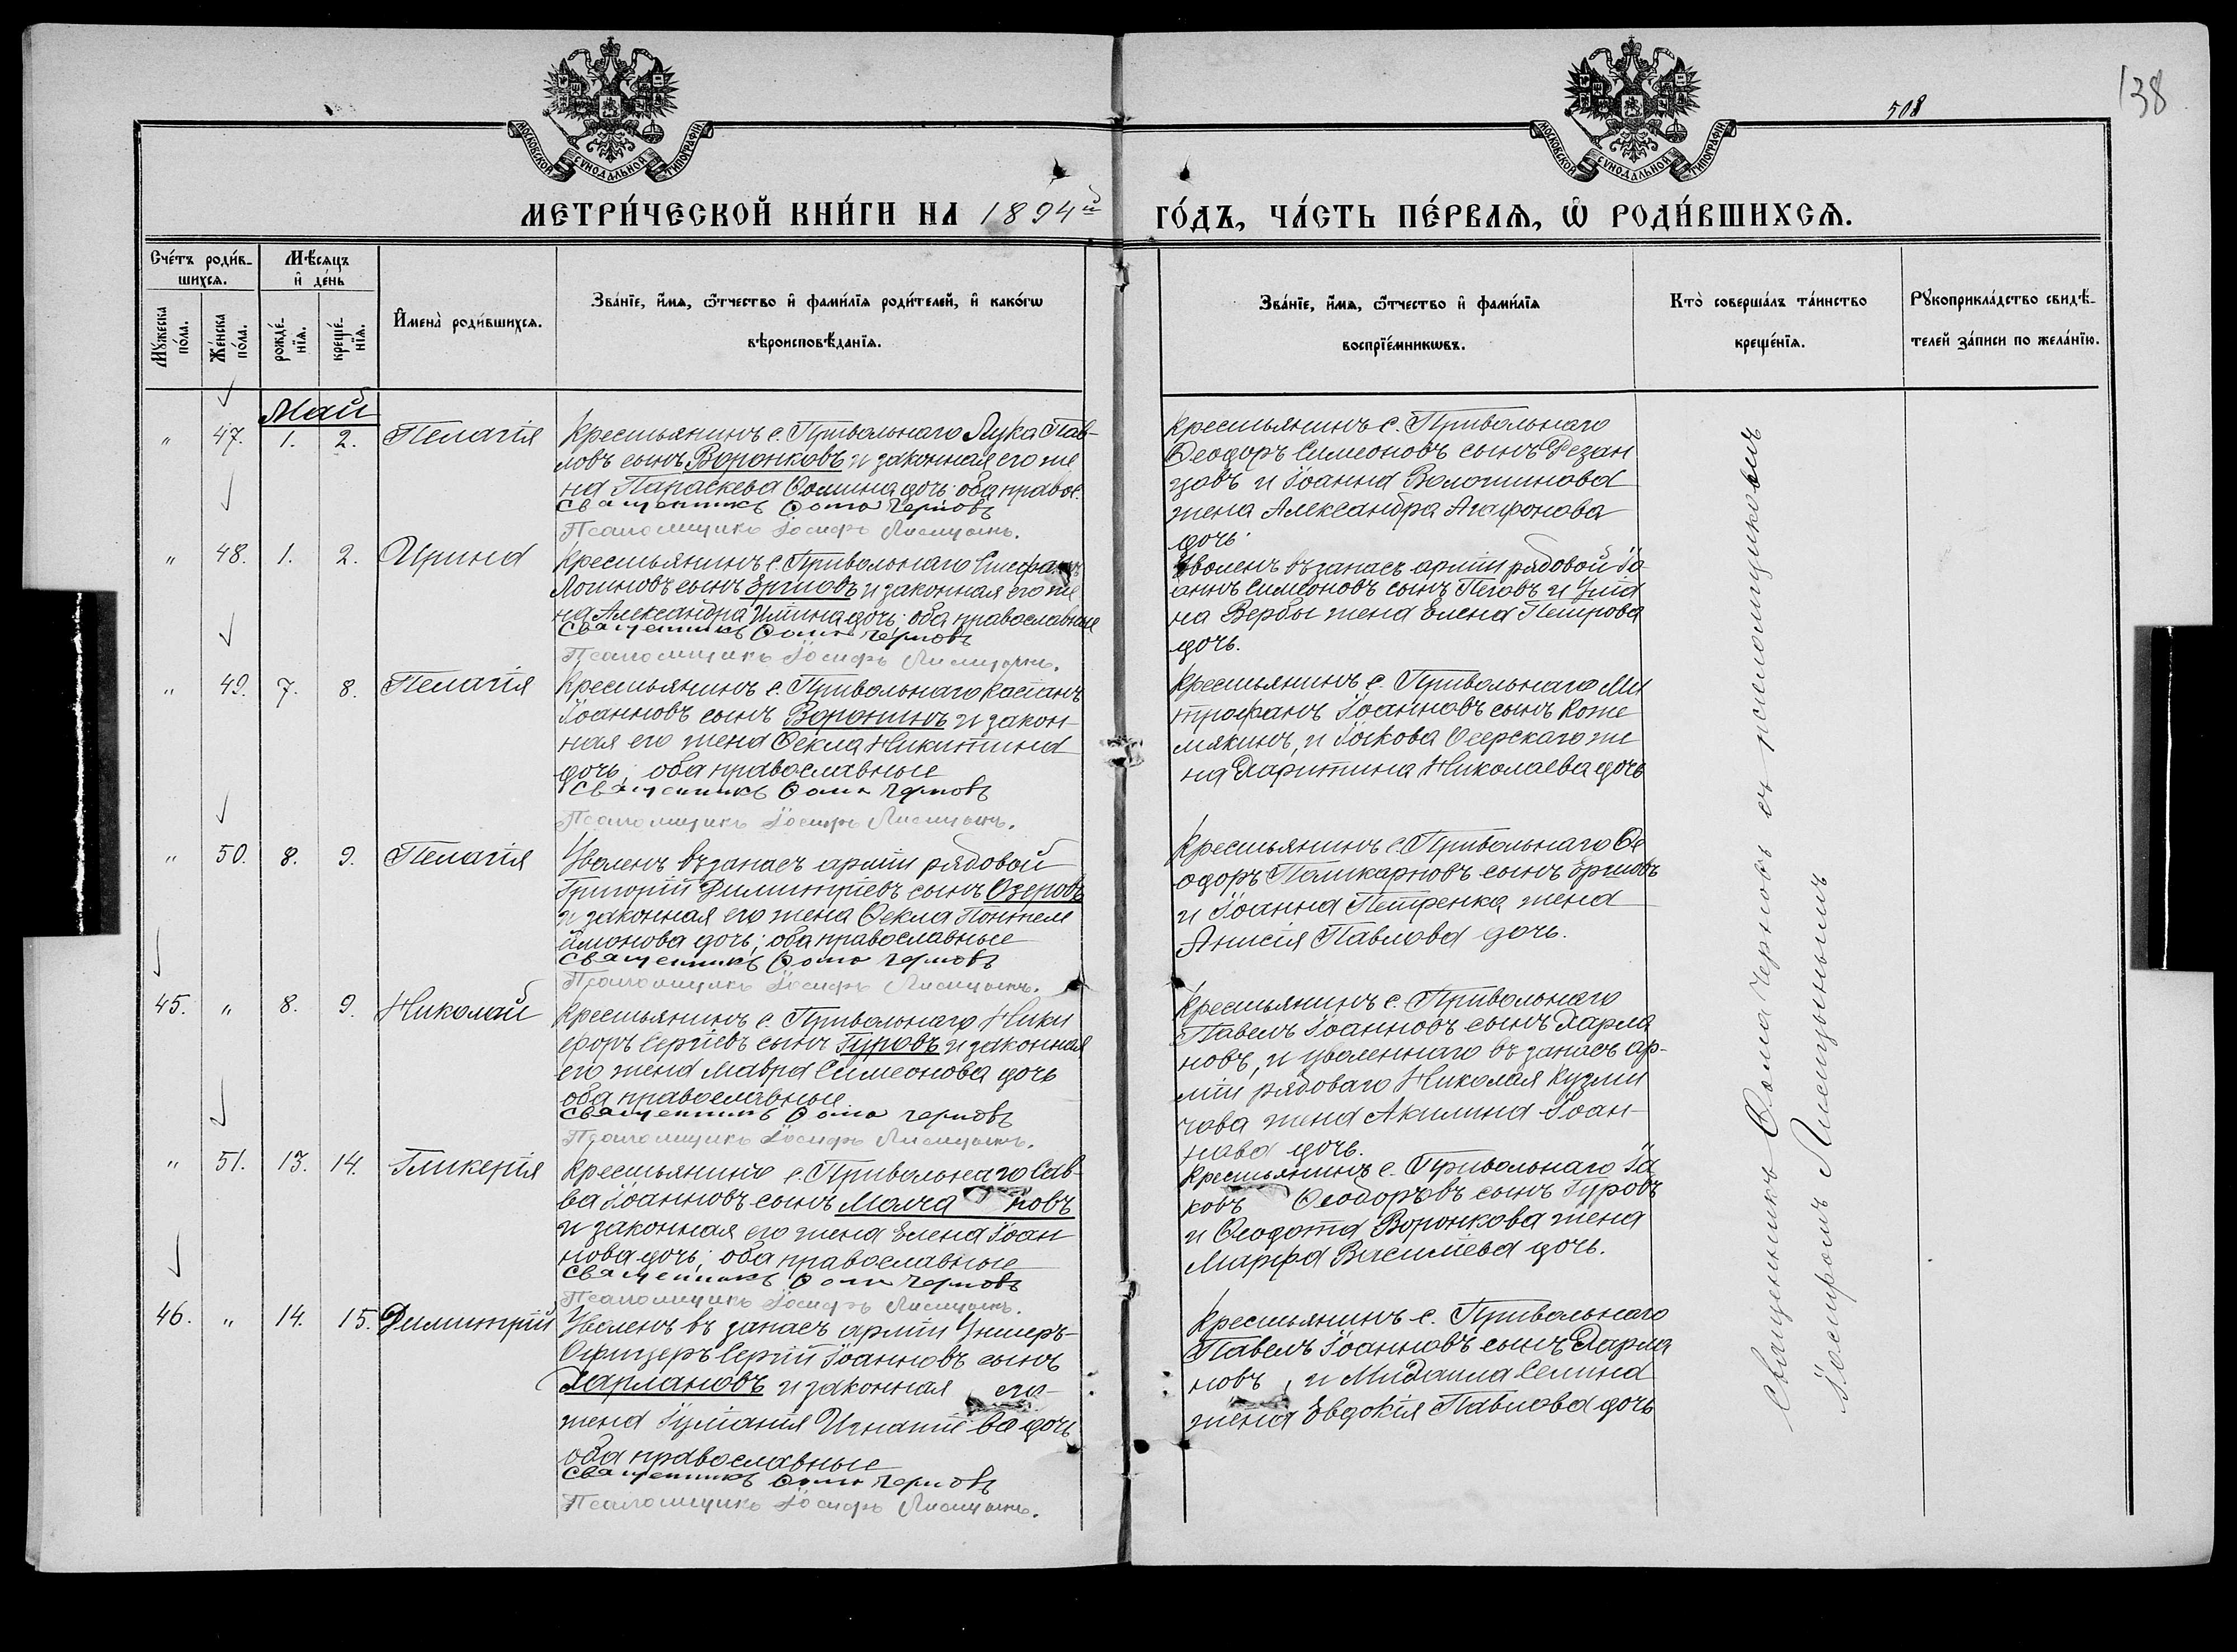 МОСКОВСКОЙ СѴНОДАЛЬНОЙ ТИПОГРАФІИ
МОСКОВСКОЙ СѴНОДАЛЬНОЙ ТИПОГРАФІИ
508
138
МЕТРИ́ЧЕСКОЙ КНИ́ГИ НА 1894й
ГО́ДЪ, ЧА́СТЬ ПЕ́РВАѦ, Ѽ РОДИ́ВШИХСѦ.
Сче́тъ роди́в-
шихсѧ.
Мꙋжеска по́ла.
Же́нска по́ла.
Мѣ́сѧцъ
и҆ де́нь
рожде́-
нїѧ.
креще́-
нїѧ.
И҆мена̀ роди́вшихсѧ.
Зва́нїе, и҆́мѧ, ѻ҆́тчество и҆ фами́лїѧ роди́телей, и҆ како́гѡ
вѣроисповѣ́данїѧ.
Зва́нїе, и҆́мѧ, ѻ҆́тчество и҆ фами́лїѧ
воспрїе́мникѡвъ.
Кто̀ соверша́лъ та́инство
креще́нїѧ.
Рꙋкоприкла́дство свидѣ́-
телей за́писи по жела́нїю.
Май
" 47. 1. 2. Пелагія
Крестьянинъ с. Привольнаго Лука Пав-
ловъ сынъ Воронковъ и законная его же
на Параскева Ѳомина дочь; оба правос.
Священникъ Ѳома Черновъ
Псаломщикъ Іосифъ Лисицынъ.
Крестьянинъ с. Привольнаго
Ѳеодоръ Симеоновъ сынъ Резан
цовъ и Іоанна Волошинова
жена Александра Агафонова
дочь.
" 48. 1. 2. Ирина
Крестьянинъ с. Привольнаго Стефанъ
Логиновъ сынъ Ергиовъ и законная его же
на Александра Ильина дочь; оба православные
Священникъ Ѳома Черновъ
Псаломщикъ Іосифъ Лисицынъ.
Уволенъ въ запасъ арміи рядовой Іо
аннъ Симеоновъ сынъ Пеговъ и Уліа
на Вербы жена Елена Петрова
дочь.
" 49. 7. 8. Пелагія
Крестьянинъ с. Привольнаго Кастанъ
Іоанновъ сынъ Воронинъ и закон-
ная его жена Ѳекла Никитина
дочь; оба православные
Священникъ Ѳома Черновъ
Псаломщикъ Іосифъ Лисицынъ.
Крестьянинъ с. Привольнаго Ми
трофанъ Іоанновъ сынъ Коже
мякинъ, и Іакова Озерскаго же
на Харитина Николаева дочь
" 50. 8. 9. Пелагія
Уволенъ въ запасъ арміи рядовой
Григорій Димитріевъ сынъ Озеровъ
и законная его жена Ѳекла Понтеле
ймонова дочь; оба православные
Священникъ Ѳома Черновъ
Псаломщикъ Іосифъ Лисицынъ.
Крестьянинъ с. Привольнаго Ѳе
одоръ Поликарповъ сынъ Ергиовъ
и Іоанна Петренка жена
Анисія Павлова дочь.
45. " 8. 9. Николай
Крестьянинъ с. Привольнаго Ники
форъ Сергіевъ сынъ Гуровъ и законная
его жена Мавра Симеонова дочь
оба православные
Священникъ Ѳома Черновъ
Псаломщикъ Іосифъ Лисицынъ.
Крестьянинъ с. Привольнаго
Павелъ Іоанновъ сынъ Харла
новъ, и уволеннаго въ запасъ ар-
міи рядоваго Николая Кузми
чова жена Акилина Іоан-
нова дочь.
" 51. 13. 14. Гликерія
Крестьянинъ с. Привольнаго Сав-
ва Іоанновъ сынъ Молча новъ
и законная его жена Елена Іоан
нова дочь; оба православные
Священникъ Ѳома Черновъ
Псаломщикъ Іосифъ Лисицынъ.
Крестьянинъ с. Привольнаго Іа
ковъ Ѳеодоровъ сынъ Гуровъ
и Ѳеодота Воронкова жена
Марфа Василіева дочь.
46. " 14. 15. Димитрій
Уволенъ въ запасъ арміи Унтеръ-
Офицеръ Сергій Іоанновъ сынъ
Харлановъ и законная его-
жена Іуліанія Игнатіева дочь
оба православные
Священникъ Ѳома Черновъ
Псаломщикъ Іосифъ Лисицынъ.
Крестьянинъ с. Привольнаго
Павелъ Іоанновъ сынъ Харла
новъ, и Михаила Селина
жена Евдокія Павлова дочь
Священникъ Ѳома Черновъ съ псаломщикомъ
Іосифомъ Лисицынымъ